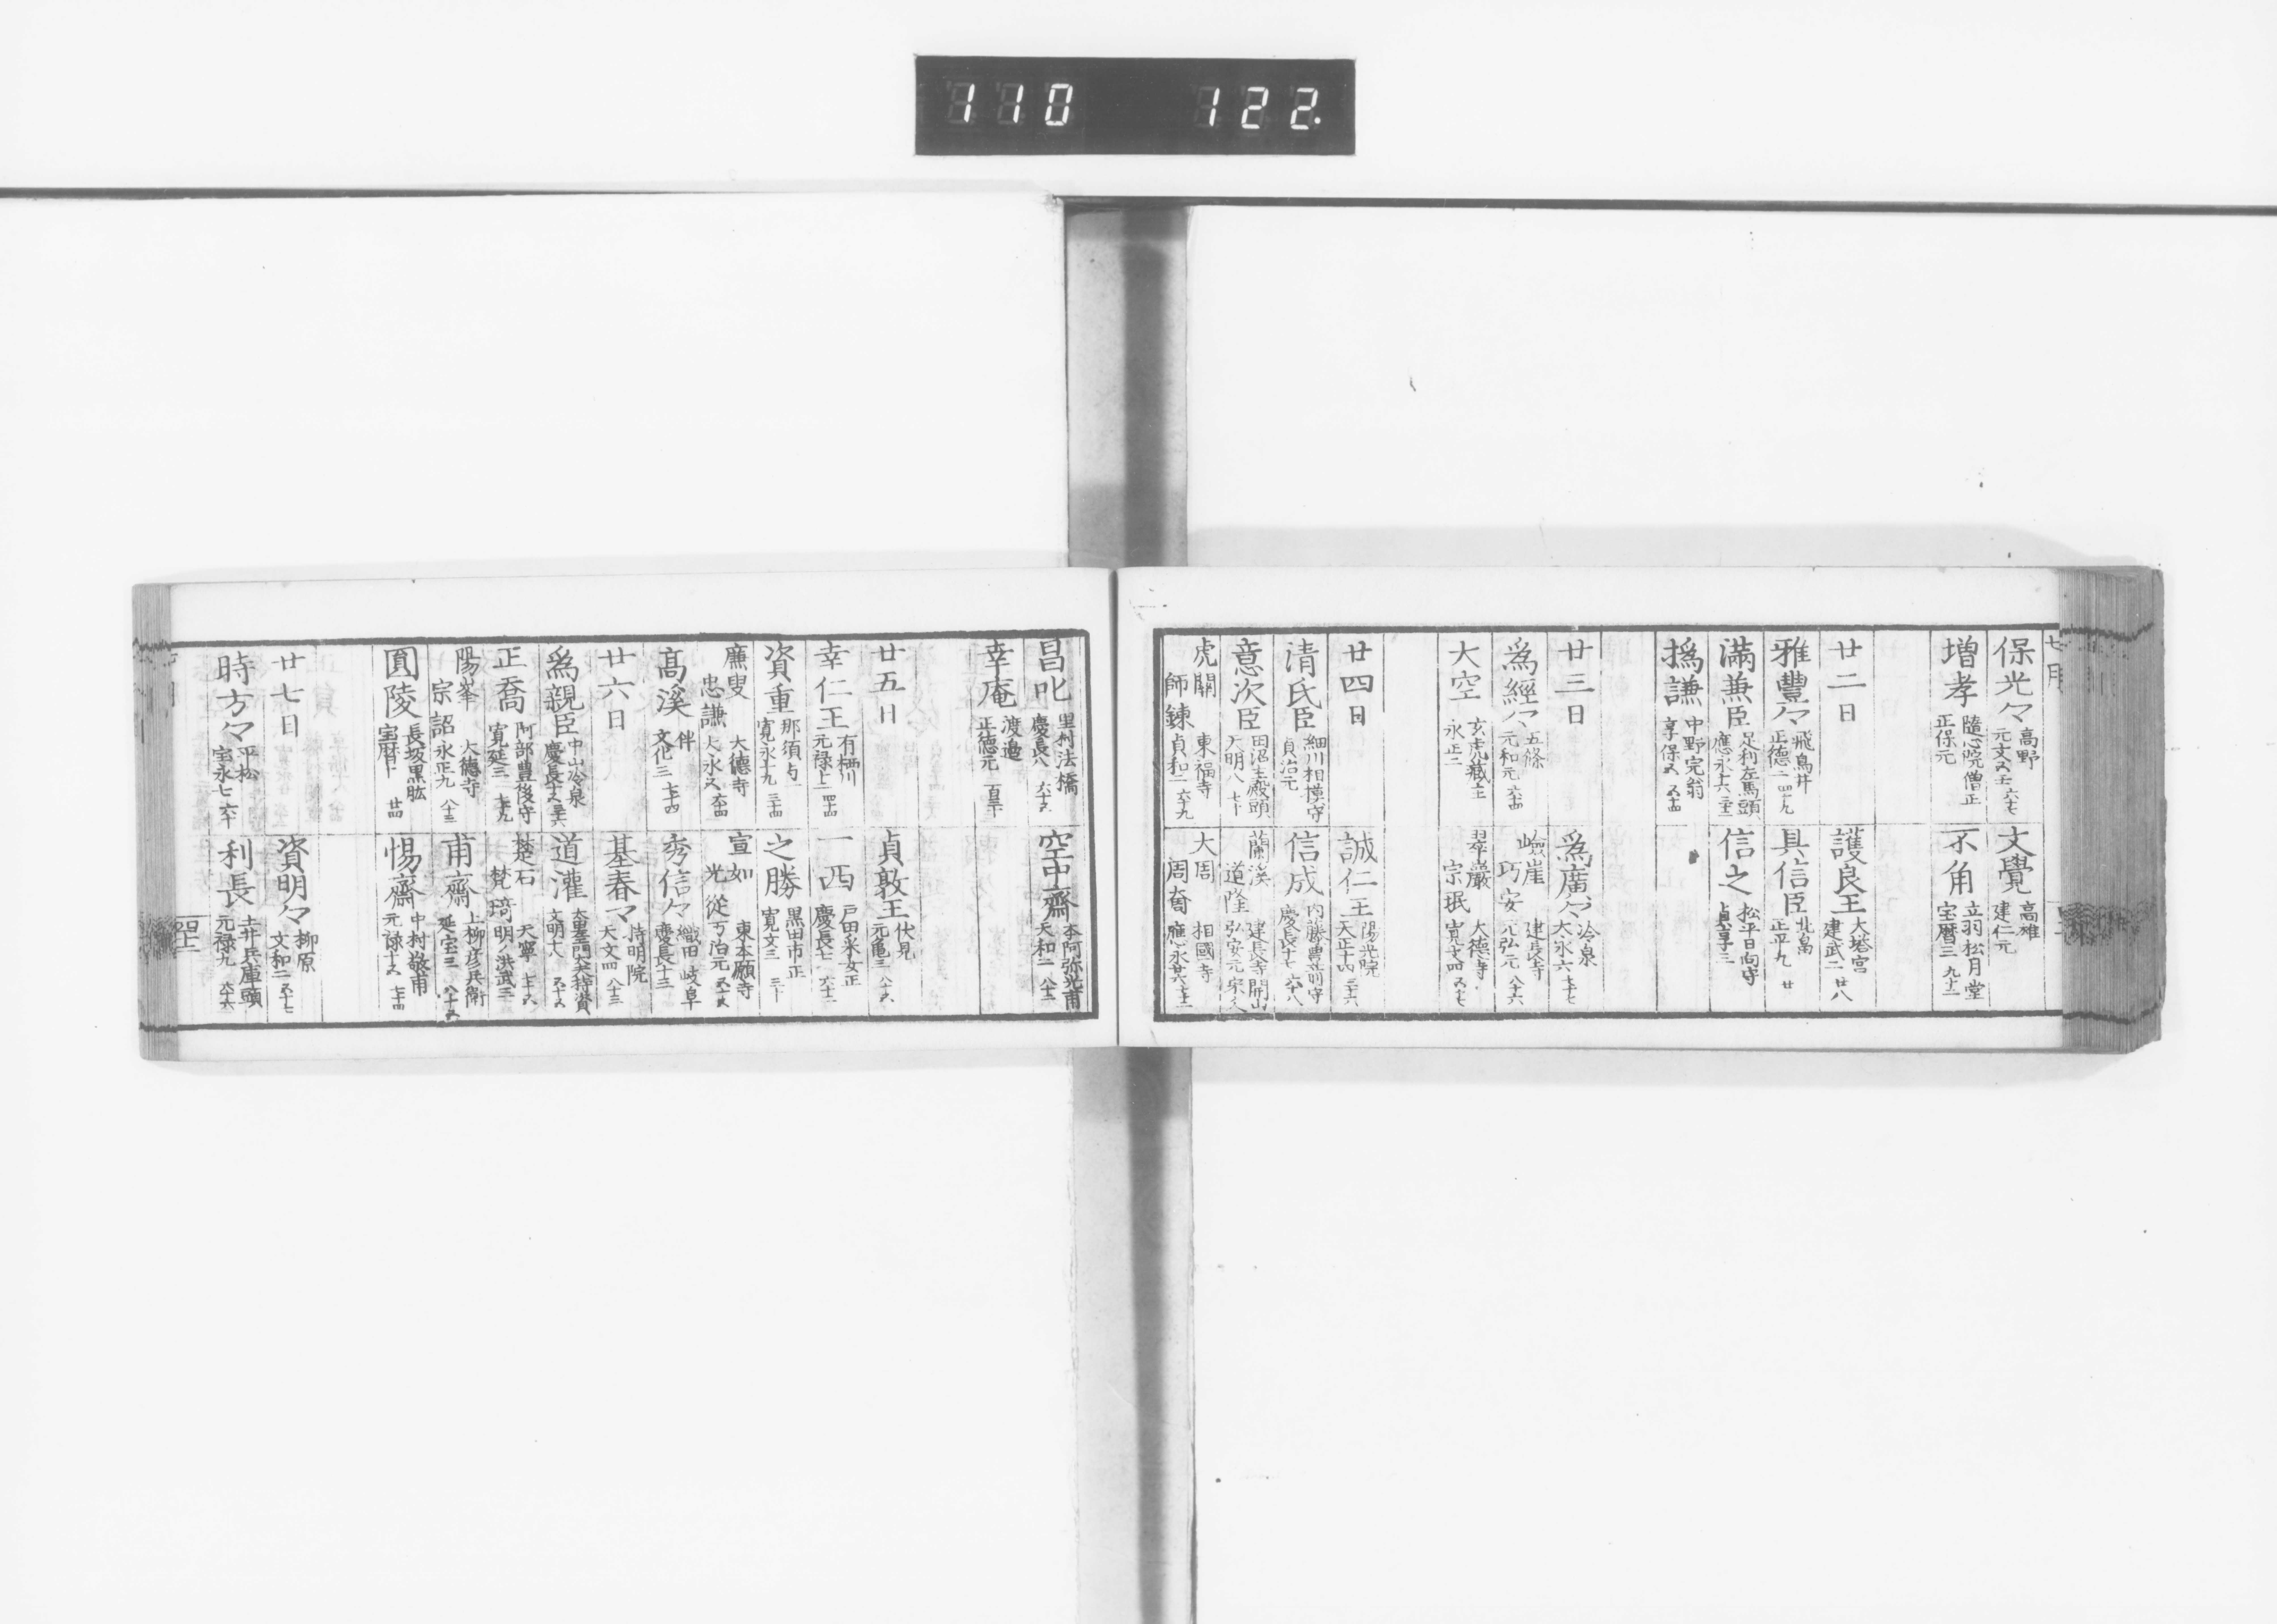 110 122.
七月
保光々 高野 元文五壬 六十七
文覺 高雄 建仁元
増孝 隨心院僧正 正保元
不角 立羽松月堂 宝暦三 九十二
廿二日
護良王 大塔宮 建武二 廿八
雅豐々 飛鳥井 正德二 四十九
具信臣 北畠 正平九 廿
滿兼臣 足利左馬頭 應永十六
信之 松平日向守 貞享三
撝謙 中野完翁 享保五 五十四
廿三日
為廣々 冷泉 大永六 七十七
為經々 五條 元和元 六十四
嶮崖 巧安 建長寺 元弘元 八十六
大空 玄虎藏主 永正二
翠巖 宗珉 大德寺 寛文四 五十七
廿四日
誠仁王 陽光院 天正十四 三十六
清氏臣 細川相模守 貞治元
信成 内藤豊前守 慶長十七 六十八
意次臣 田沼主殿頭 天明八 七十
蘭溪 道隆 建長寺開山 弘安元 宋人
虎關 師錬 東福寺 貞和二 六十九
大周 周奝 相國寺 應永廿六 七十二
昌叱 里村法橋 慶長八 六十五
空中齋 本阿弥光甫 天和二 八十二
幸庵 渡邉 正德元 百三十
廿五日
貞敦王 伏見 元亀三 八十五
幸仁王 有栖川 元禄十二 四十四
一西 戸田采女正 慶長七 六十二
資重 那須与一 寛永十九 三十四
之勝 黒田市正 寛文三 三十
廉叟 忠謙 大德寺 大永五 六十四
宣如 光從 東本願寺 万治元 五十五
高溪 伴 文化三 七十四
秀信々 織田 岐阜 慶長十三
廿六日
基春々 持明院 天文四 八十三
為親臣 中山冷泉 慶長十五 三十六
道灌 太田左衛門大夫持資 文明十八 五十五
正喬 阿部豊後守 寛延三 七十九
楚石 梵琦 天寧 七十五 明ノ洪武三
陽峯 宗韶 大德寺 永正九 八十三
甫齋 上柳彦兵衛 延宝三 八十五
圓陵 長坂黒肱 宝暦十 廿四
惕齋 中村敬甫 元禄十五 七十四
廿七日
資明々 柳原 文和二 五十七
時方々 平松 宝永七 六十
利長 土井兵庫頭 元禄九 六十六
四十二